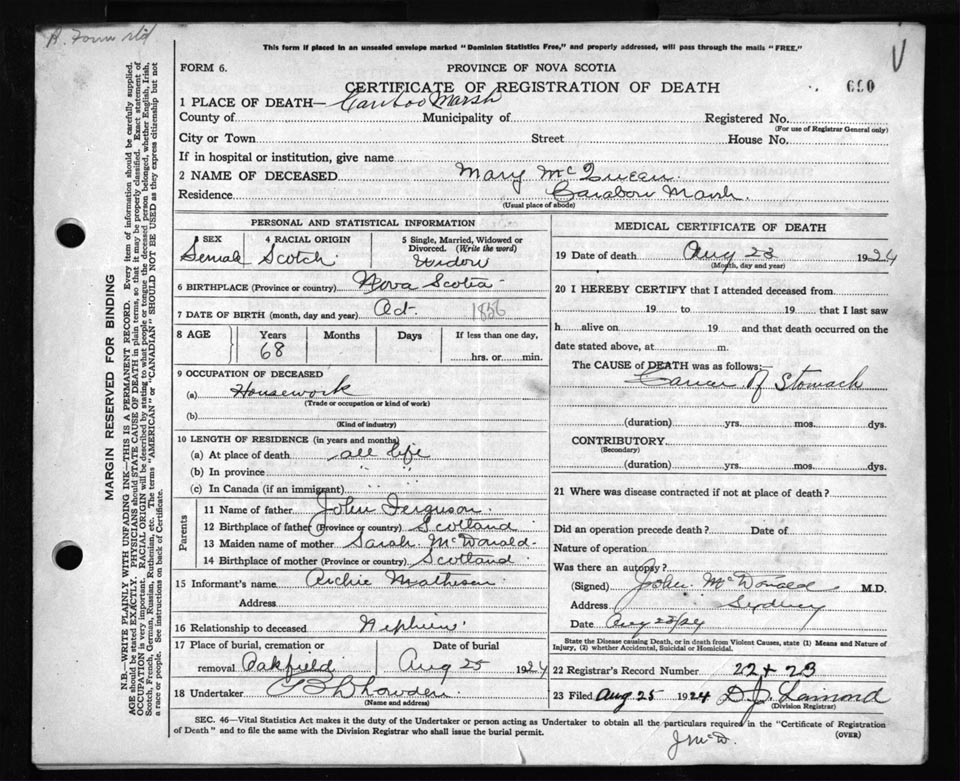 This form if placed in an unsealed envelope marked "Dominion Statistics Free," and properly addressed, will pass through the mails "FREE."
FORM 6.
PROVINCE OF NOVA SCOTIA
CERTIFICATE OF REGISTRATION OF DEATH
690
1 PLACE OF DEATH— Cariboo Marsh
County of Municipality of Registered No.
(For use of Registrar General only)
City or Town Street House No.
If in hospital or institution, give name
2 NAME OF DECEASED Mary McQueen
Residence Carabou Marsh
(Usual place of abode)
PERSONAL AND STATISTICAL INFORMATION
3 SEX 4 RACIAL ORIGIN 5 Single, Married, Widowed or
Divorced. (Write the word)
Femal Scotch Widow
6 BIRTHPLACE (Province or country) Nova Scotia
7 DATE OF BIRTH (month, day and year) Oct 1856
8 AGE Years Months Days If less than one day,
68 hrs. or min.
9 OCCUPATION OF DECEASED
(a) Housework
(Trade or occupation or kind of work)
(b)
(Kind of industry)
10 LENGTH OF RESIDENCE (in years and months)
(a) At place of death all life
(b) In province " "
(c) In Canada (if an immigrant)
Parents
11 Name of father John Ferguson
12 Birthplace of father (Province or country) Scotland
13 Maiden name of mother Sarah McDonald
14 Birthplace of mother (Province or country) Scotland
15 Informant's name Archie Matheson
Address
16 Relationship to deceased Nephew
17 Place of burial, cremation or Date of burial
removal Oakfield Aug 25 1924
18 Undertaker
(Name and address)
MEDICAL CERTIFICATE OF DEATH
19 Date of death Aug 23 1924
(Month, day and year)
20 I HEREBY CERTIFY that I attended deceased from
19 to 19 that I last saw
h alive on 19 and that death occurred on the
date stated above, at m.
The CAUSE of DEATH was as follows:—
Cancer of Stomach
(duration) yrs. mos. dys.
CONTRIBUTORY
(Secondary)
(duration) yrs. mos. dys.
21 Where was disease contracted if not at place of death?
Did an operation precede death? Date of
Nature of operation
Was there an autopsy?
(Signed) John McDonald M.D.
Address Sydney
Date Aug 23/24
State the Disease causing Death, or in death from Violent Causes, state (1) Means and Nature of
Injury, (2) whether Accidental, Suicidal or Homicidal.
22 Registrar's Record Number 22 + 23
23 Filed Aug 25 1924
(Division Registrar)
SEC. 46—Vital Statistics Act makes it the duty of the Undertaker or person acting as Undertaker to obtain all the particulars required in the "Certificate of Registration
of Death" and to file the same with the Division Registrar who shall issue the burial permit.
(OVER)
J McD.
MARGIN RESERVED FOR BINDING
N.B.—WRITE PLAINLY WITH UNFADING INK—THIS IS A PERMANENT RECORD. Every item of information should be carefully supplied.
AGE should be stated EXACTLY. PHYSICIANS should STATE CAUSE OF DEATH in plain terms, so that it may be properly classified. Exact statement of
OCCUPATION is very important. RACIAL ORIGIN will be described by stating to what people or tongue the deceased person belonged, whether English, Irish,
Scotch, French, German, Russian, Ruthenian, etc. The terms "AMERICAN" or "CANADIAN" SHOULD NOT BE USED as they express citizenship but not
a race or people. See instructions on back of Certificate.